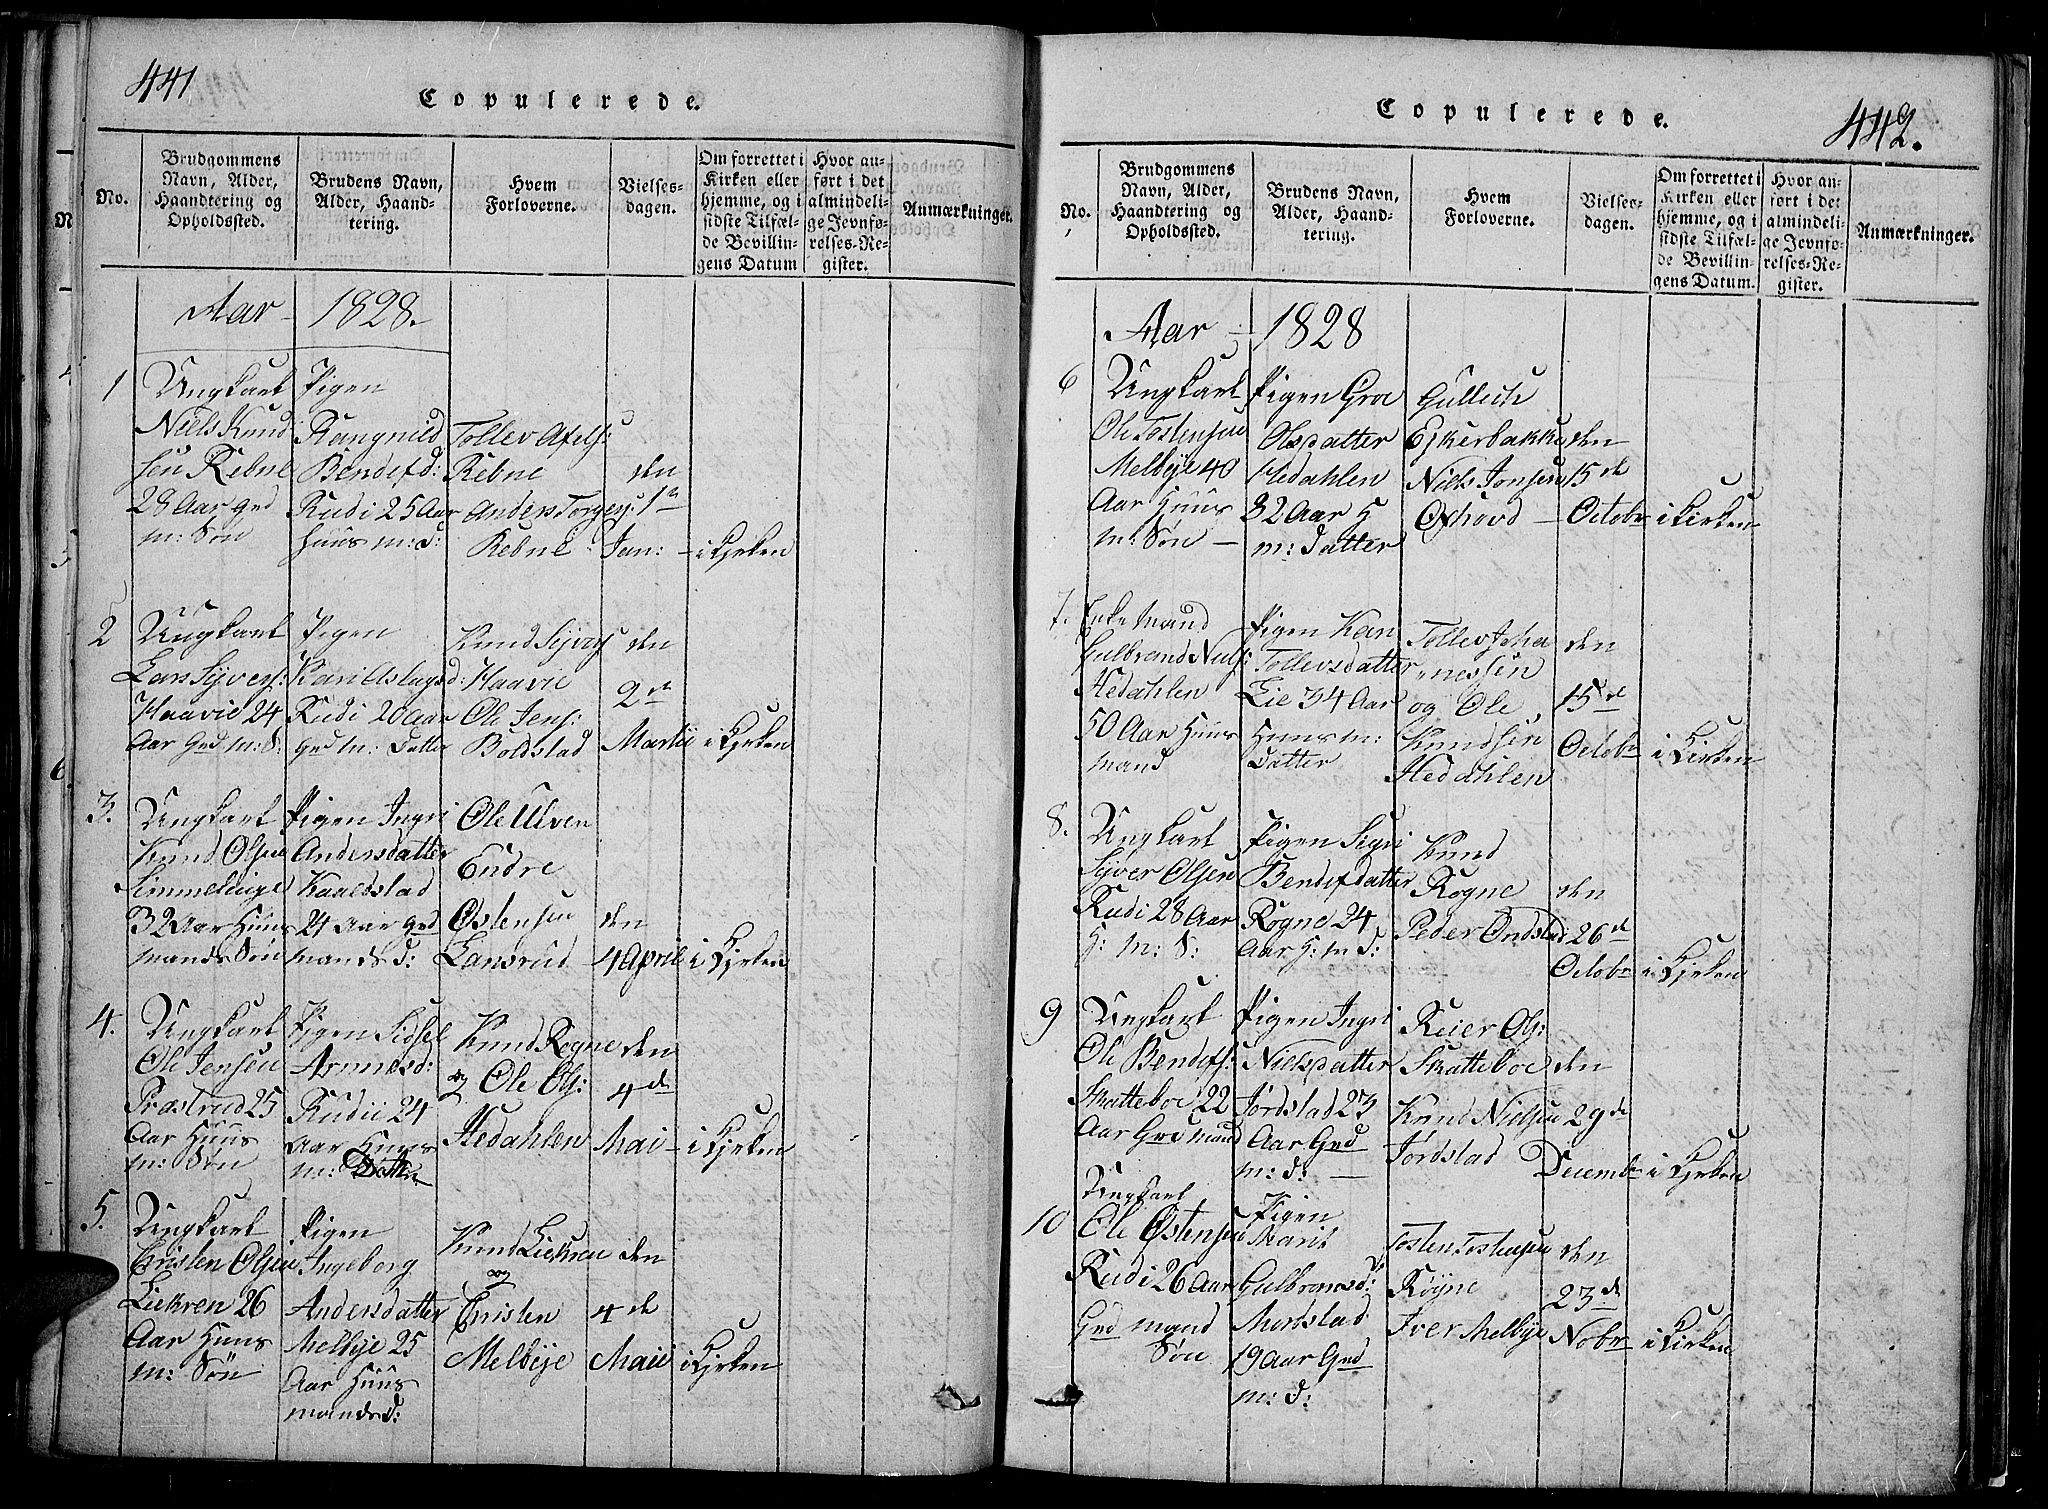 441
Copulerede.
No.
Brudgommens
Navn, Alder,
Haandtering og
Opholdssted.
Brudens Navn,
Alder, Haand-
tering.
Hvem
Forloverne.
Vielses-
dagen.
Om forrettet i
Kirken eller
hjemme, og i
sidste Tilfæl-
de Bevillin-
gens Datum
Hvor an-
ført i det
almindeli-
ge Jevnfø-
relses-Re-
gister.
Anmærkninger.
Aar - 1828.
1
Ungkarl
Niels Knud
sen Rebne
28 Aar Grd
m: Søn
Pigen
Rangnild
Bendefd:
Rudi 25 Aar
Huus m: d:
Tollev Axels:
Rebne
Anders Torgers:
Rebne
den
1ste
Jan:
i Kjrken
2
Ungkarl
Lars Syvers:
Haavie 24
Aar Grd m: S:
Pigen
Kari Aslagsd:
Rudi 20 Aar
Grd m: Datter
Knud Syvers
Haavie
Ole Jens:
Boldstad
den
2de
Martii
i Kjrken
3.
Ungkarl
Knud Olsen
32 Aar Huus
mands Søn
Pigen Ingri
Andersdatter
Kaaldstad
24 Aar Grd
mands d:
Ole Ulven
Endre
Østensen
Lansrud
den
4 April
i Kjrken
4.
Ungkarl
Ole Jensen
Præstrud 25
Aar Huus
m: Søn
Pigen Sidsel
Arnnesd:
Rudii 24
Aar Huus
m: Datter
Knud Rogne
og Ole Ols:
Hedahlen
den
4de
Mai
i Kjrken
5.
Ungkarl
Cristen Olsen
Liekren 26
Aar Huus
m: Søn
Pigen
Ingeborg
Andersdatter
Melbye 25
Aar Huus
mands d:
Knud Liekren
og
Cristen
Melbye
den
4de
Maii
i Kjrken
442.
Copulerede.
No.
Brudgommens
Navn, Alder,
Haandtering og
Opholdssted.
Brudens Navn,
Alder, Haand-
tering.
Hvem
Forloverne.
Vielses-
dagen.
Om forrettet i
Kirken eller
hjemme, og i
sidste Tilfæl-
de Bevillin-
gens Datum.
Hvor an-
ført i det
almindeli-
ge Jevnfø-
relses-Re-
gister.
Anmærkninger.
Aar - 1828
6
Ungkarl
Ole Tostensen
Melbye 40
Aar Huus
m: Søn
Pigen Groe
Olsdatter
Hedahlen
32 Aar H
m: Datter
Gullech
Eskerbakke
Niels Jonsen
Oxhovd
den
15de
Octobr
i Kirken
7.
Enke Mand
Gulbrand Niels:
Hedahlen
50 Aar Huus
mand
Pigen Kari
Tollevsdatter
Lie 34 Aar
Huus m:
Datter
Tollev Joha
nessen
og Ole
Knudsen
Hedahlen
den
15de
Octobr
i Kirken
8.
Ungkarl
Syver Olsen
Rudi 28 Aar
H: m: S:
Pigen Sigri
Bendefdatter
Rogne 24
Aar H: m d:
Knud
Rogne
Peder Ondstad
den
26de
Octobr
i Kjrken
9
Ungkarl
Ole Bendefs:
Skatteboe 22
Aar Grd mand
Pigen Ingri
Nielsdatter
Jørdstad 23
Aar Grd
m: d:
Reier Ols:
Skatteboe
Knud Nielsen
Jørdstad
den
29de
Decembr
i Kjrken
10
Ungkarl
Ole Østensen
Rudi 26 Aar
Grd mand
Søn
Pigen
Marit
Gulbransd:
19 Aar Grd
m: d:
Tosten Tostensen
Røyne
Iver Melbye
den
23de
Nobr
i Kirken